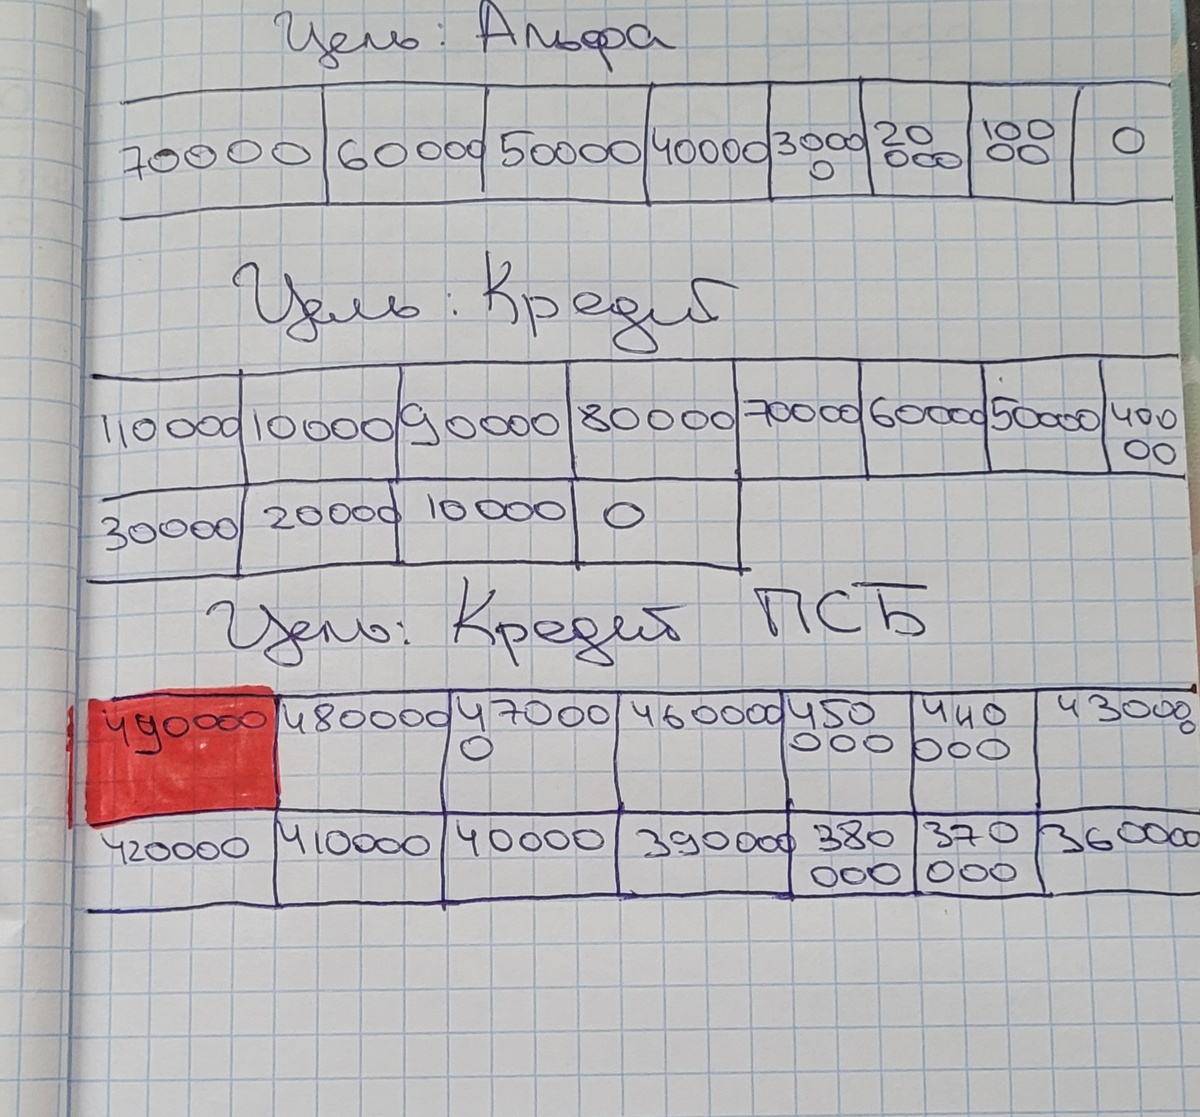 Цель: Альфа
70000 60000 50000 40000 30000 20000 10000 0
Цель: Кредит
110000 10000 90000 80000 70000 60000 50000 40000
30000 20000 10000 0
Цель: Кредит ПСБ
490000 480000 470000 460000 450000 440000 430000
420000 410000 40000 390000 380000 370000 360000